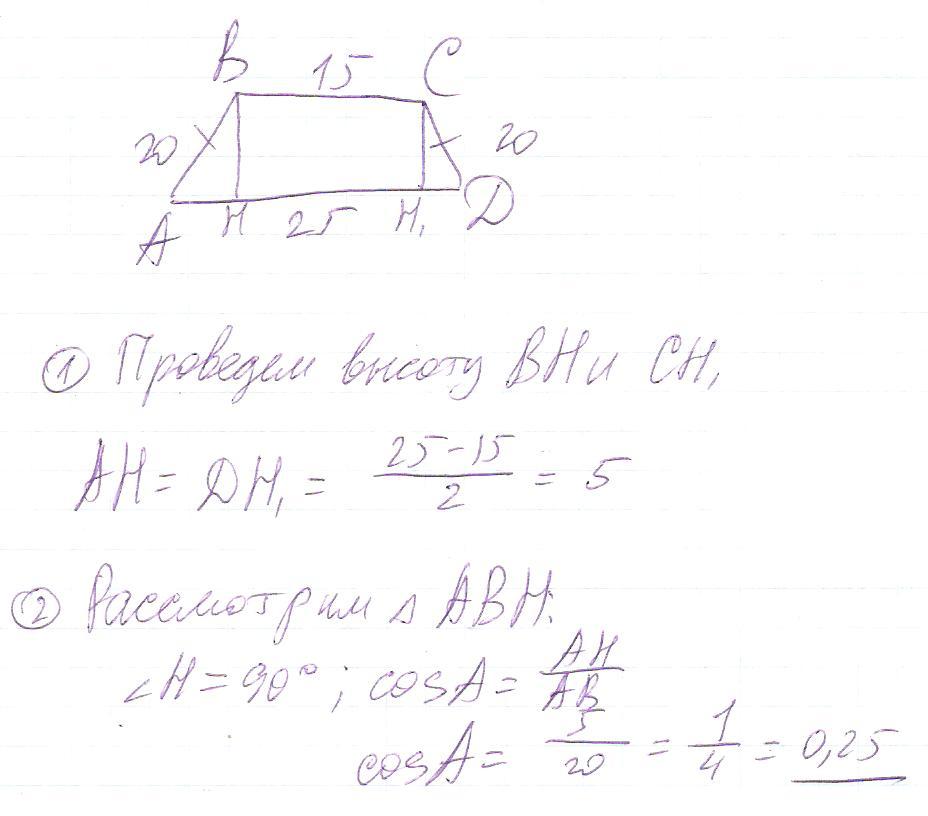 B 15 C
20 20
A H 25 H₁ D
① Проведем высоту BH и CH₁
AH = DH₁ = (25-15)/2 = 5
② Рассмотрим △ ABH:
∠H = 90°; cosA = AH/AB
cosA = 5/20 = 1/4 = 0,25